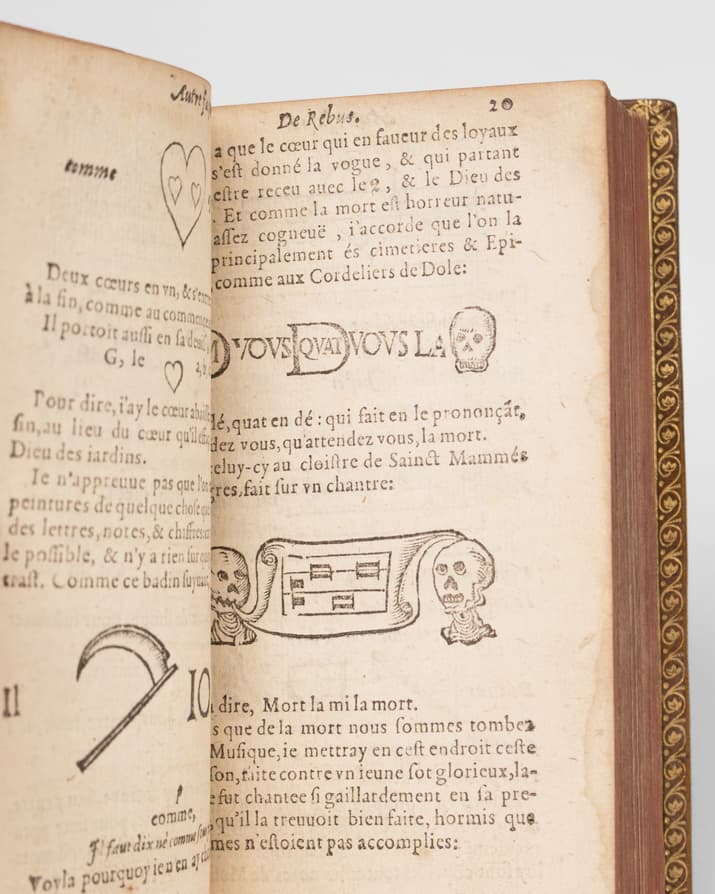 Autre
comme
Deux cœurs en vn, &
à la fin, comme au
Il portoit aussi en sa
G, le
Pour dire, i'ay le cœur
fin, au lieu du cœur
Dieu des iardins.
Ie n'appreuue pas que
peintures de quelque chose
des lettres, notes, & chiffres
le possible, & n'y a rien
trast. Comme ce badin
Il
IO
comme,
Il faut
Voyla pourquoy i'en
De Rebus.
20
a que le cœur qui en faueur des loyaux
s'est donné la vogue, & qui partant
estre receu auec le 2, & le Dieu des
. Et comme la mort est horreur natu-
assez cogneuë, i'accorde que l'on la
principalement és cimetieres & Epi-
comme aux Cordeliers de Dole:
D VOVS QVAT D VOVS LA
dé, quat en dé: qui fait en le prononçãt,
dez vous, qu'attendez vous, la mort.
celuy-cy au cloistre de Sainct Mammés
gres, fait sur vn chantre:
dire, Mort la mi la mort.
s que de la mort nous sommes tombez
Musique, ie mettray en cest endroit ceste
son, faite contre vn ieune sot glorieux, la-
e fut chantee si gaillardement en sa pre-
qu'il la treuuoit bien faite, hormis que
mes n'estoient pas accomplies: